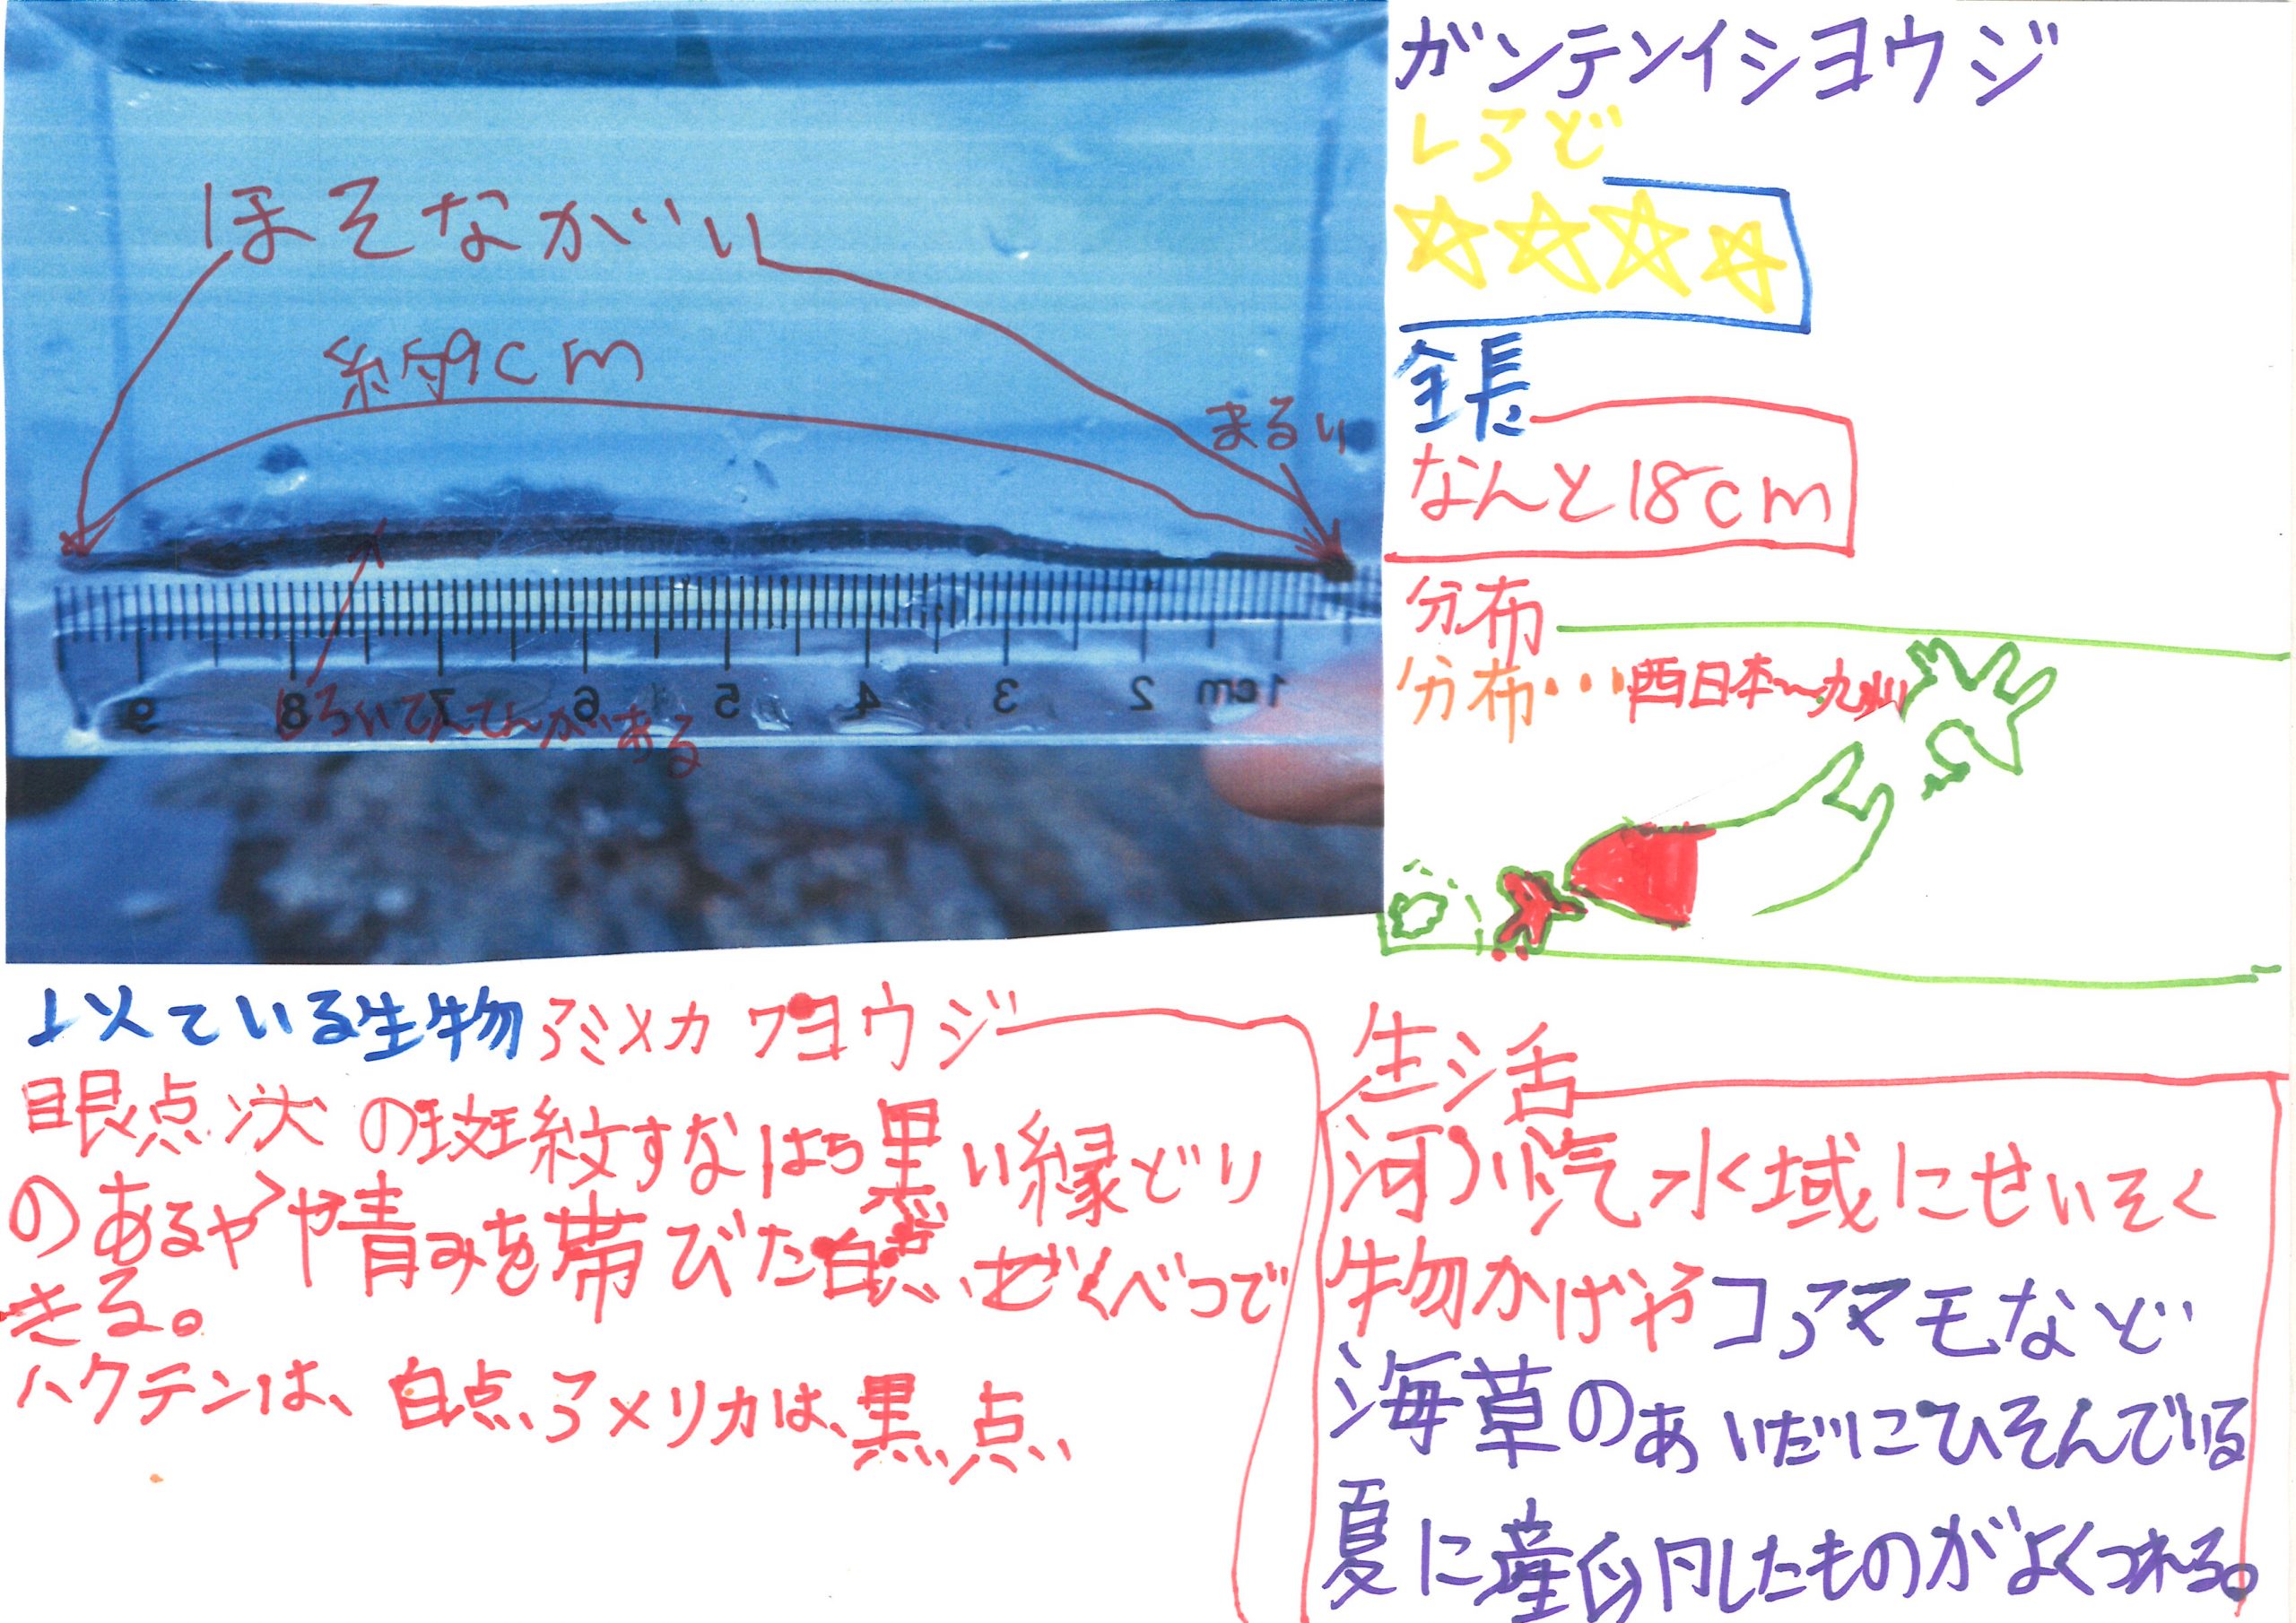 ガンテンイシヨウジ
レアど
☆☆☆☆
全長
なんと18cm
分布
分布・・・西日本〜九州
ほそながい
約9cm
まるい
しろいてんてんがある
9 8 7 6 5 4 3 2 1cm
似ている生物 アミメカワヨウジ
眼点状の斑紋すなはち黒い縁どり
のあるやや青みを帯びた白点、でくべつで
きる。
ハクテンは、白点、アメリカは、黒点、
生活
河川汽水域にせいそく
物かげやコアマモなど
海草のあいだにひそんでいる
夏に産卵したものがよくつれる。